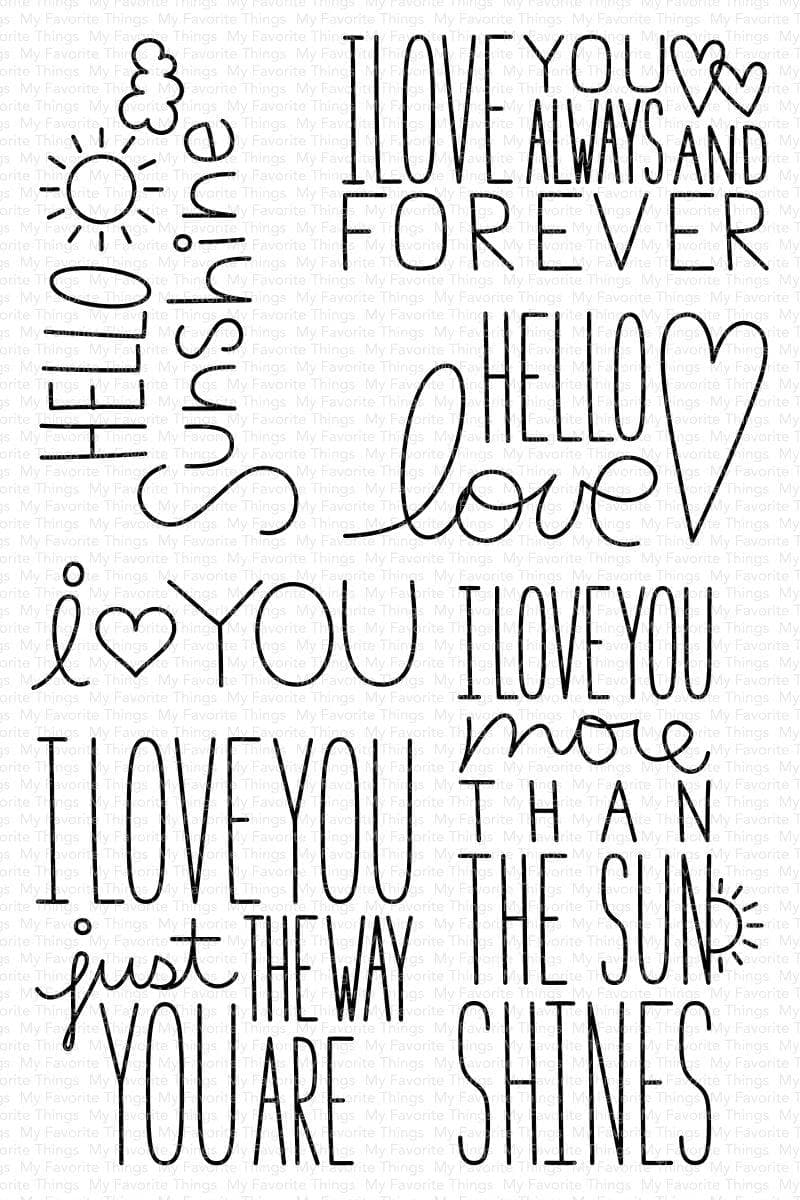 HELLO
Sunshine
I LOVE YOU
ALWAYS AND
FOREVER
HELLO
love
i YOU
I LOVE YOU
just THE WAY
YOU ARE
I LOVE YOU
more
THAN
THE SUN
SHINES
My Favorite Things